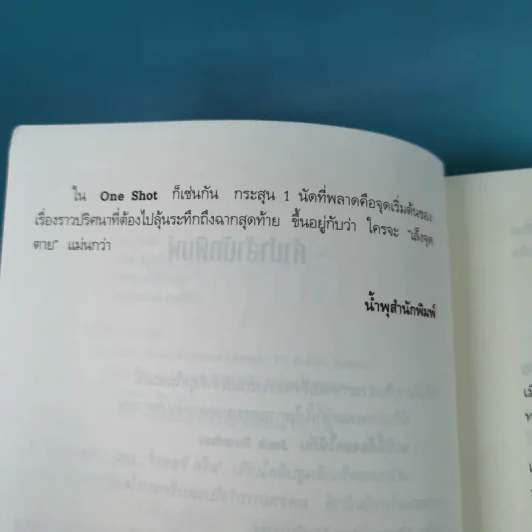 ใน One Shot ก็เช่นกัน กระสุน 1 นัดที่พลาดคือจุดเริ่มต้นของ
เรื่องราวปริศนาที่ต้องไปลุ้นระทึกถึงฉากสุดท้าย ขึ้นอยู่กับว่า ใครจะ "เล็งจุด
ตาย" แม่นกว่า
น้ำพุสำนักพิมพ์